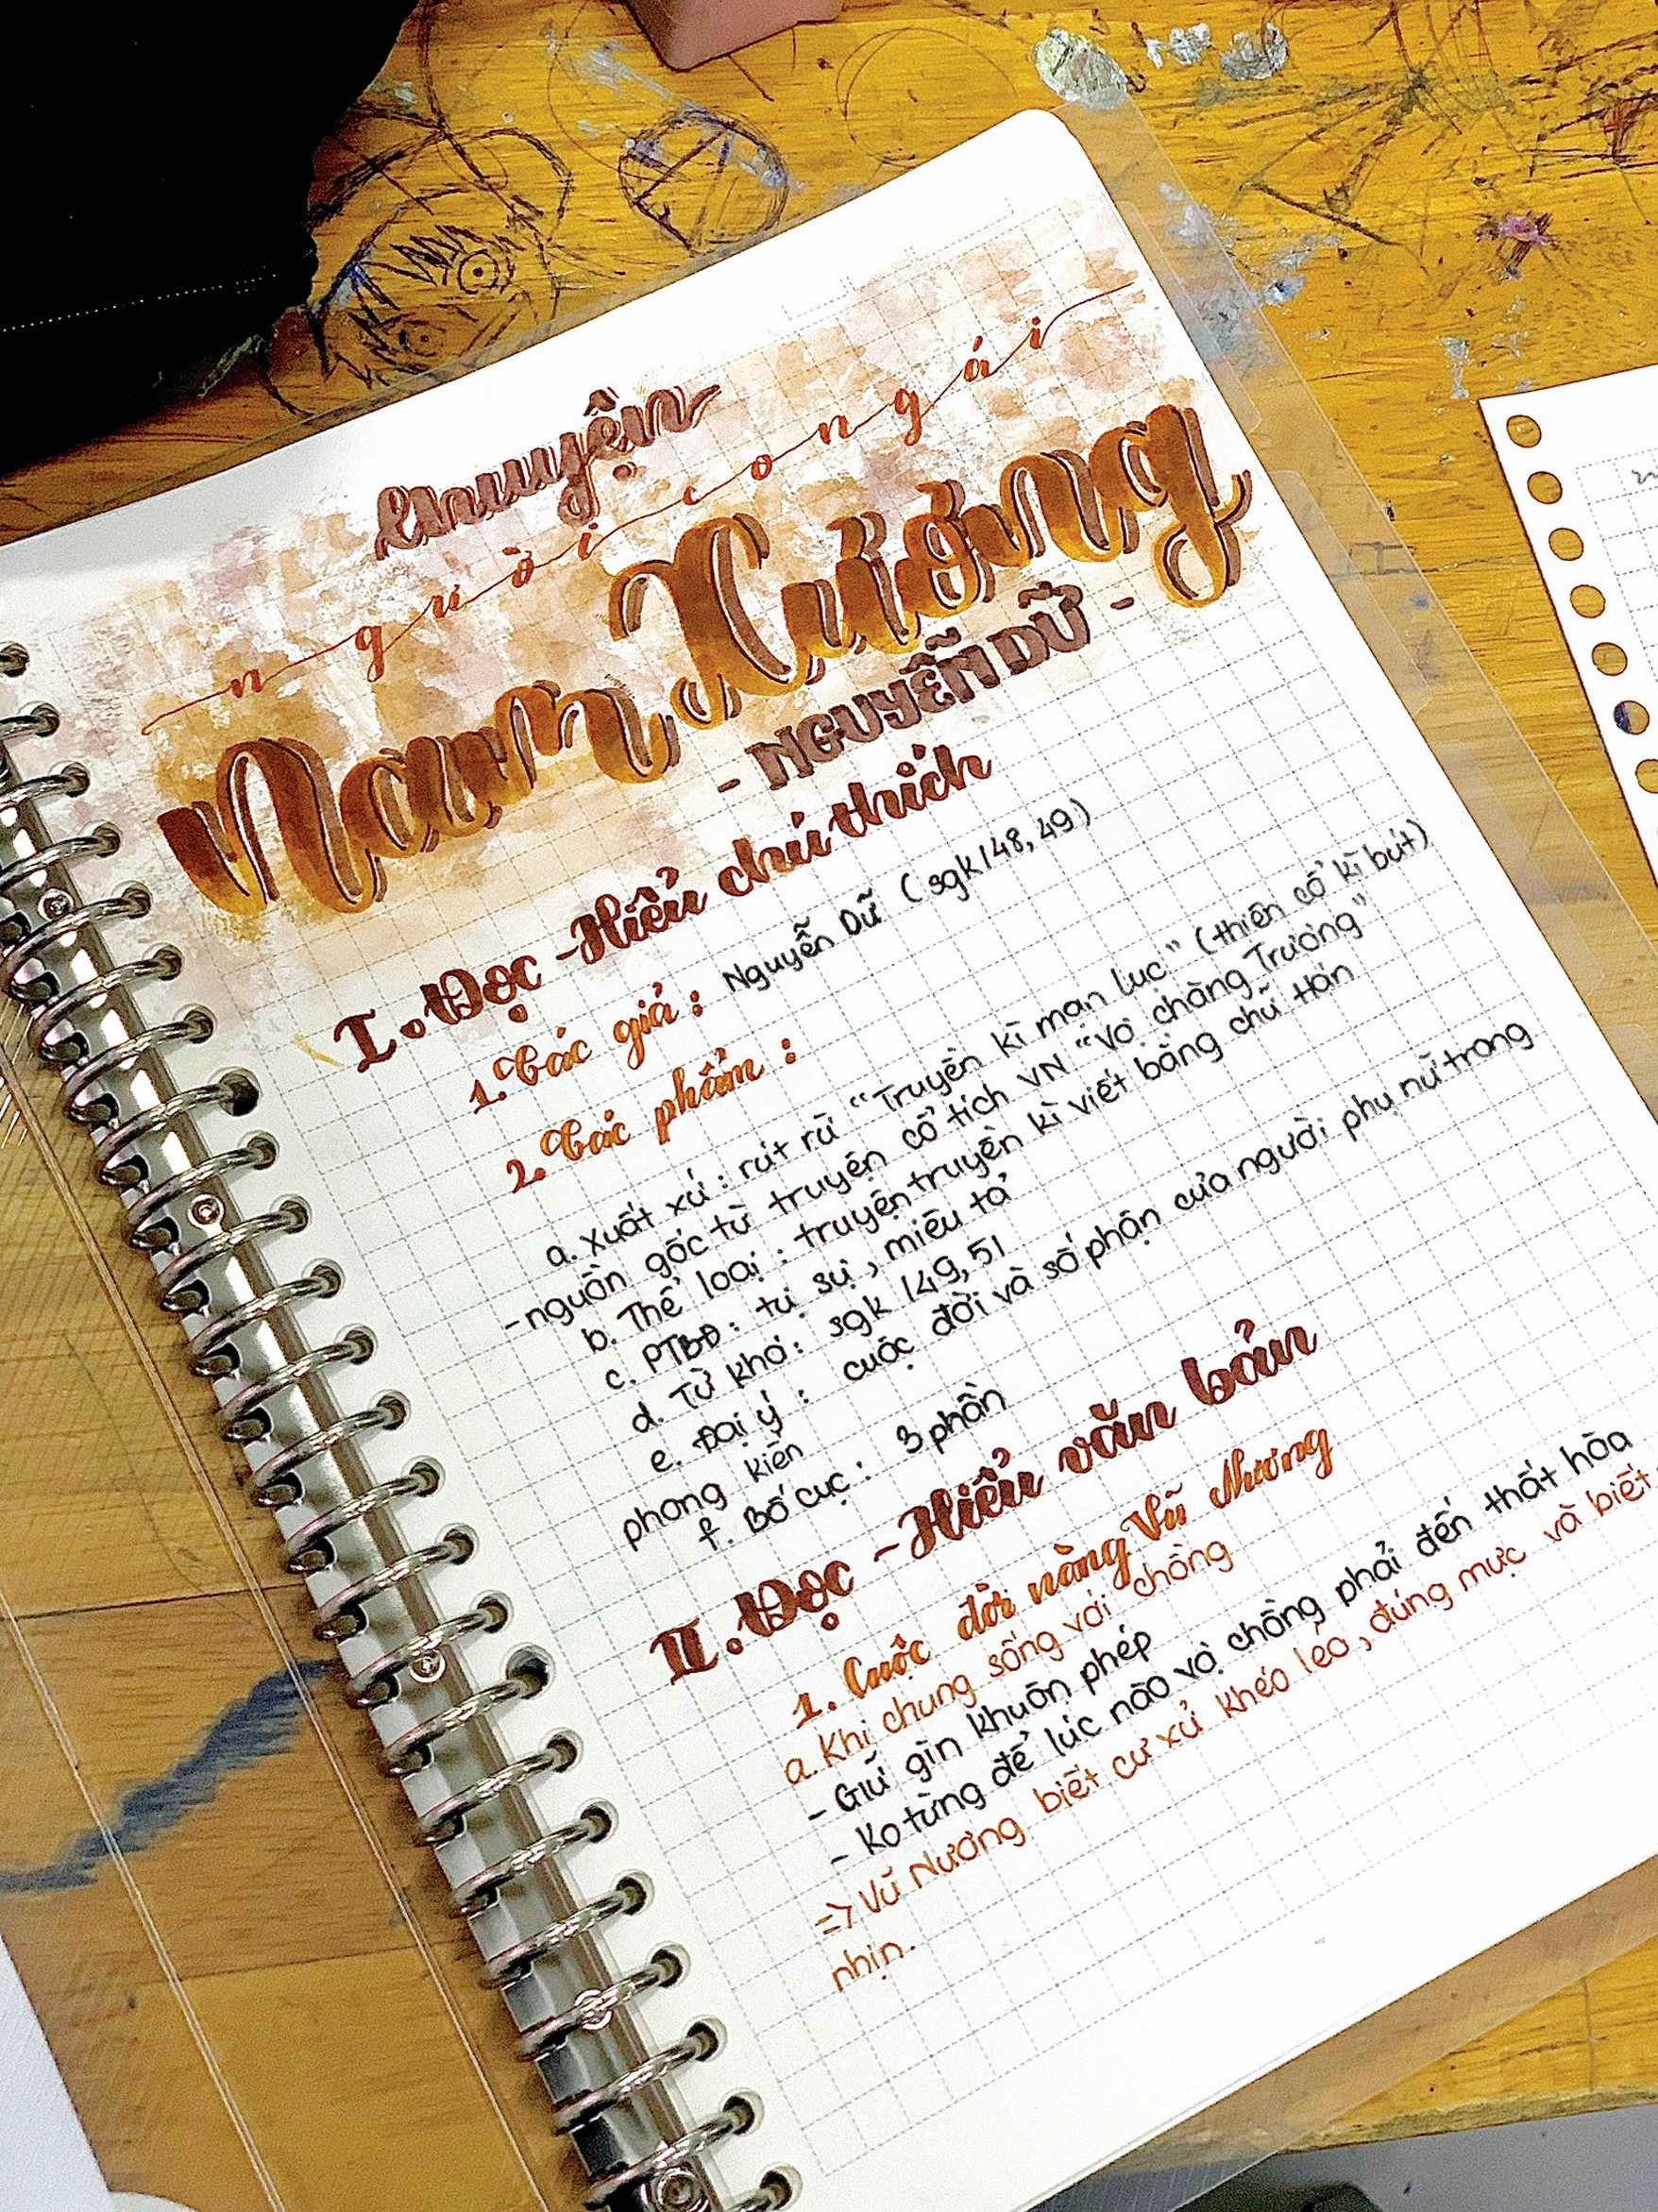 Chuyện
người con gái
Nam Xương
- NGUYỄN DỮ -
I. Đọc - Hiểu chú thích
1. Tác giả : Nguyễn Dữ ( sgk / 48, 49 )
2. Tác phẩm :
a. Xuất xứ : rút rừ “Truyền kì mạn lục” (thiên cổ kì bút)
- nguồn gốc từ truyện cổ tích VN “Vợ chàng Trương”
b. Thể loại : truyện truyền kì viết bằng chữ Hán
c. PTBĐ : tự sự, miêu tả
d. Từ khó : sgk / 49, 51
e. Đại ý : cuộc đời và số phận của người phụ nữ trong
phong kiến
f. Bố cục : 3 phần
II. Đọc - Hiểu văn bản
1. Cuộc đời nàng Vũ Nương
a. Khi chung sống với chồng
- Giữ gìn khuôn phép
- Ko từng để lúc nào vợ chồng phải đến thất hòa
=> Vũ Nương biết cư xử khéo léo, đúng mực và biết
nhịn.